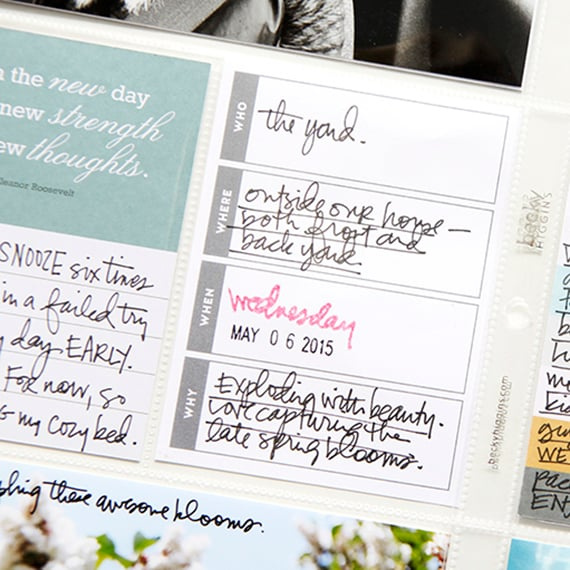 the new day
new strength
new thoughts.
Eleanor Roosevelt
SNOOZE six times
in a failed try
day EARLY.
For now, so
my cozy bed.
WHO
the yard.
WHERE
outside our home —
both front and
back yard.
WHEN
wednesday
MAY 06 2015
WHY
Exploding with beauty.
Love capturing the
late spring blooms.
these awesome blooms.
becky
HIGGINS
beckyhiggins.com
WE
ENJ